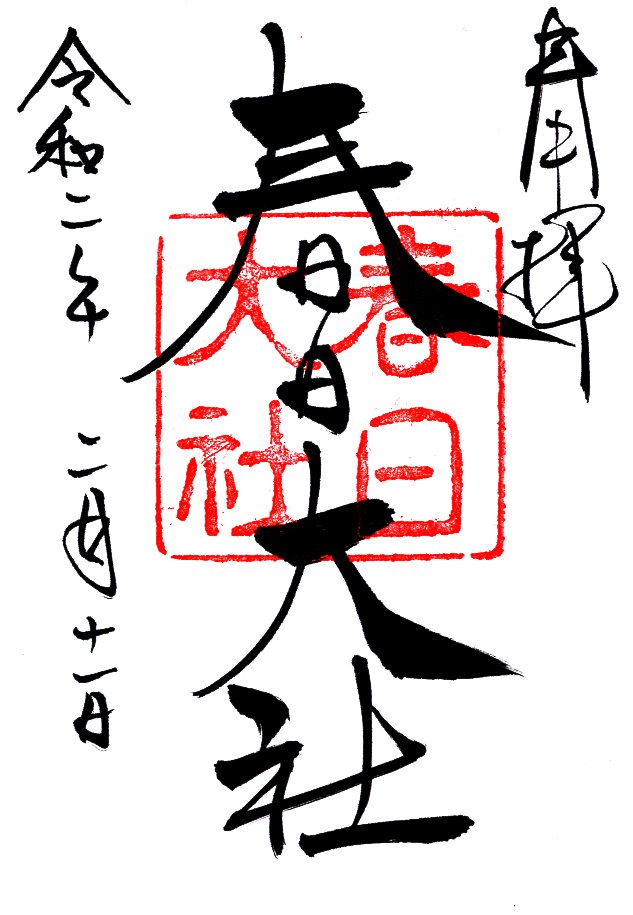 奉拝
春日大社
春日
大社
令和二年 二月十一日